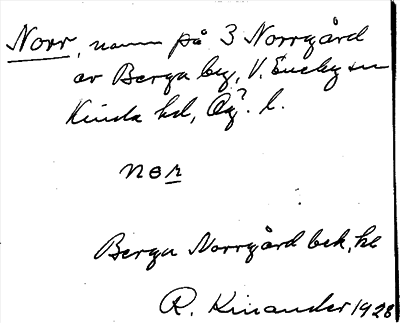 Norr, namn på 3 Norrgård
av Berga by, V. Eneby sn
Kinda hd, Ög. l.
nor
Berga Norrgård bek, he
R. Kinander 1928